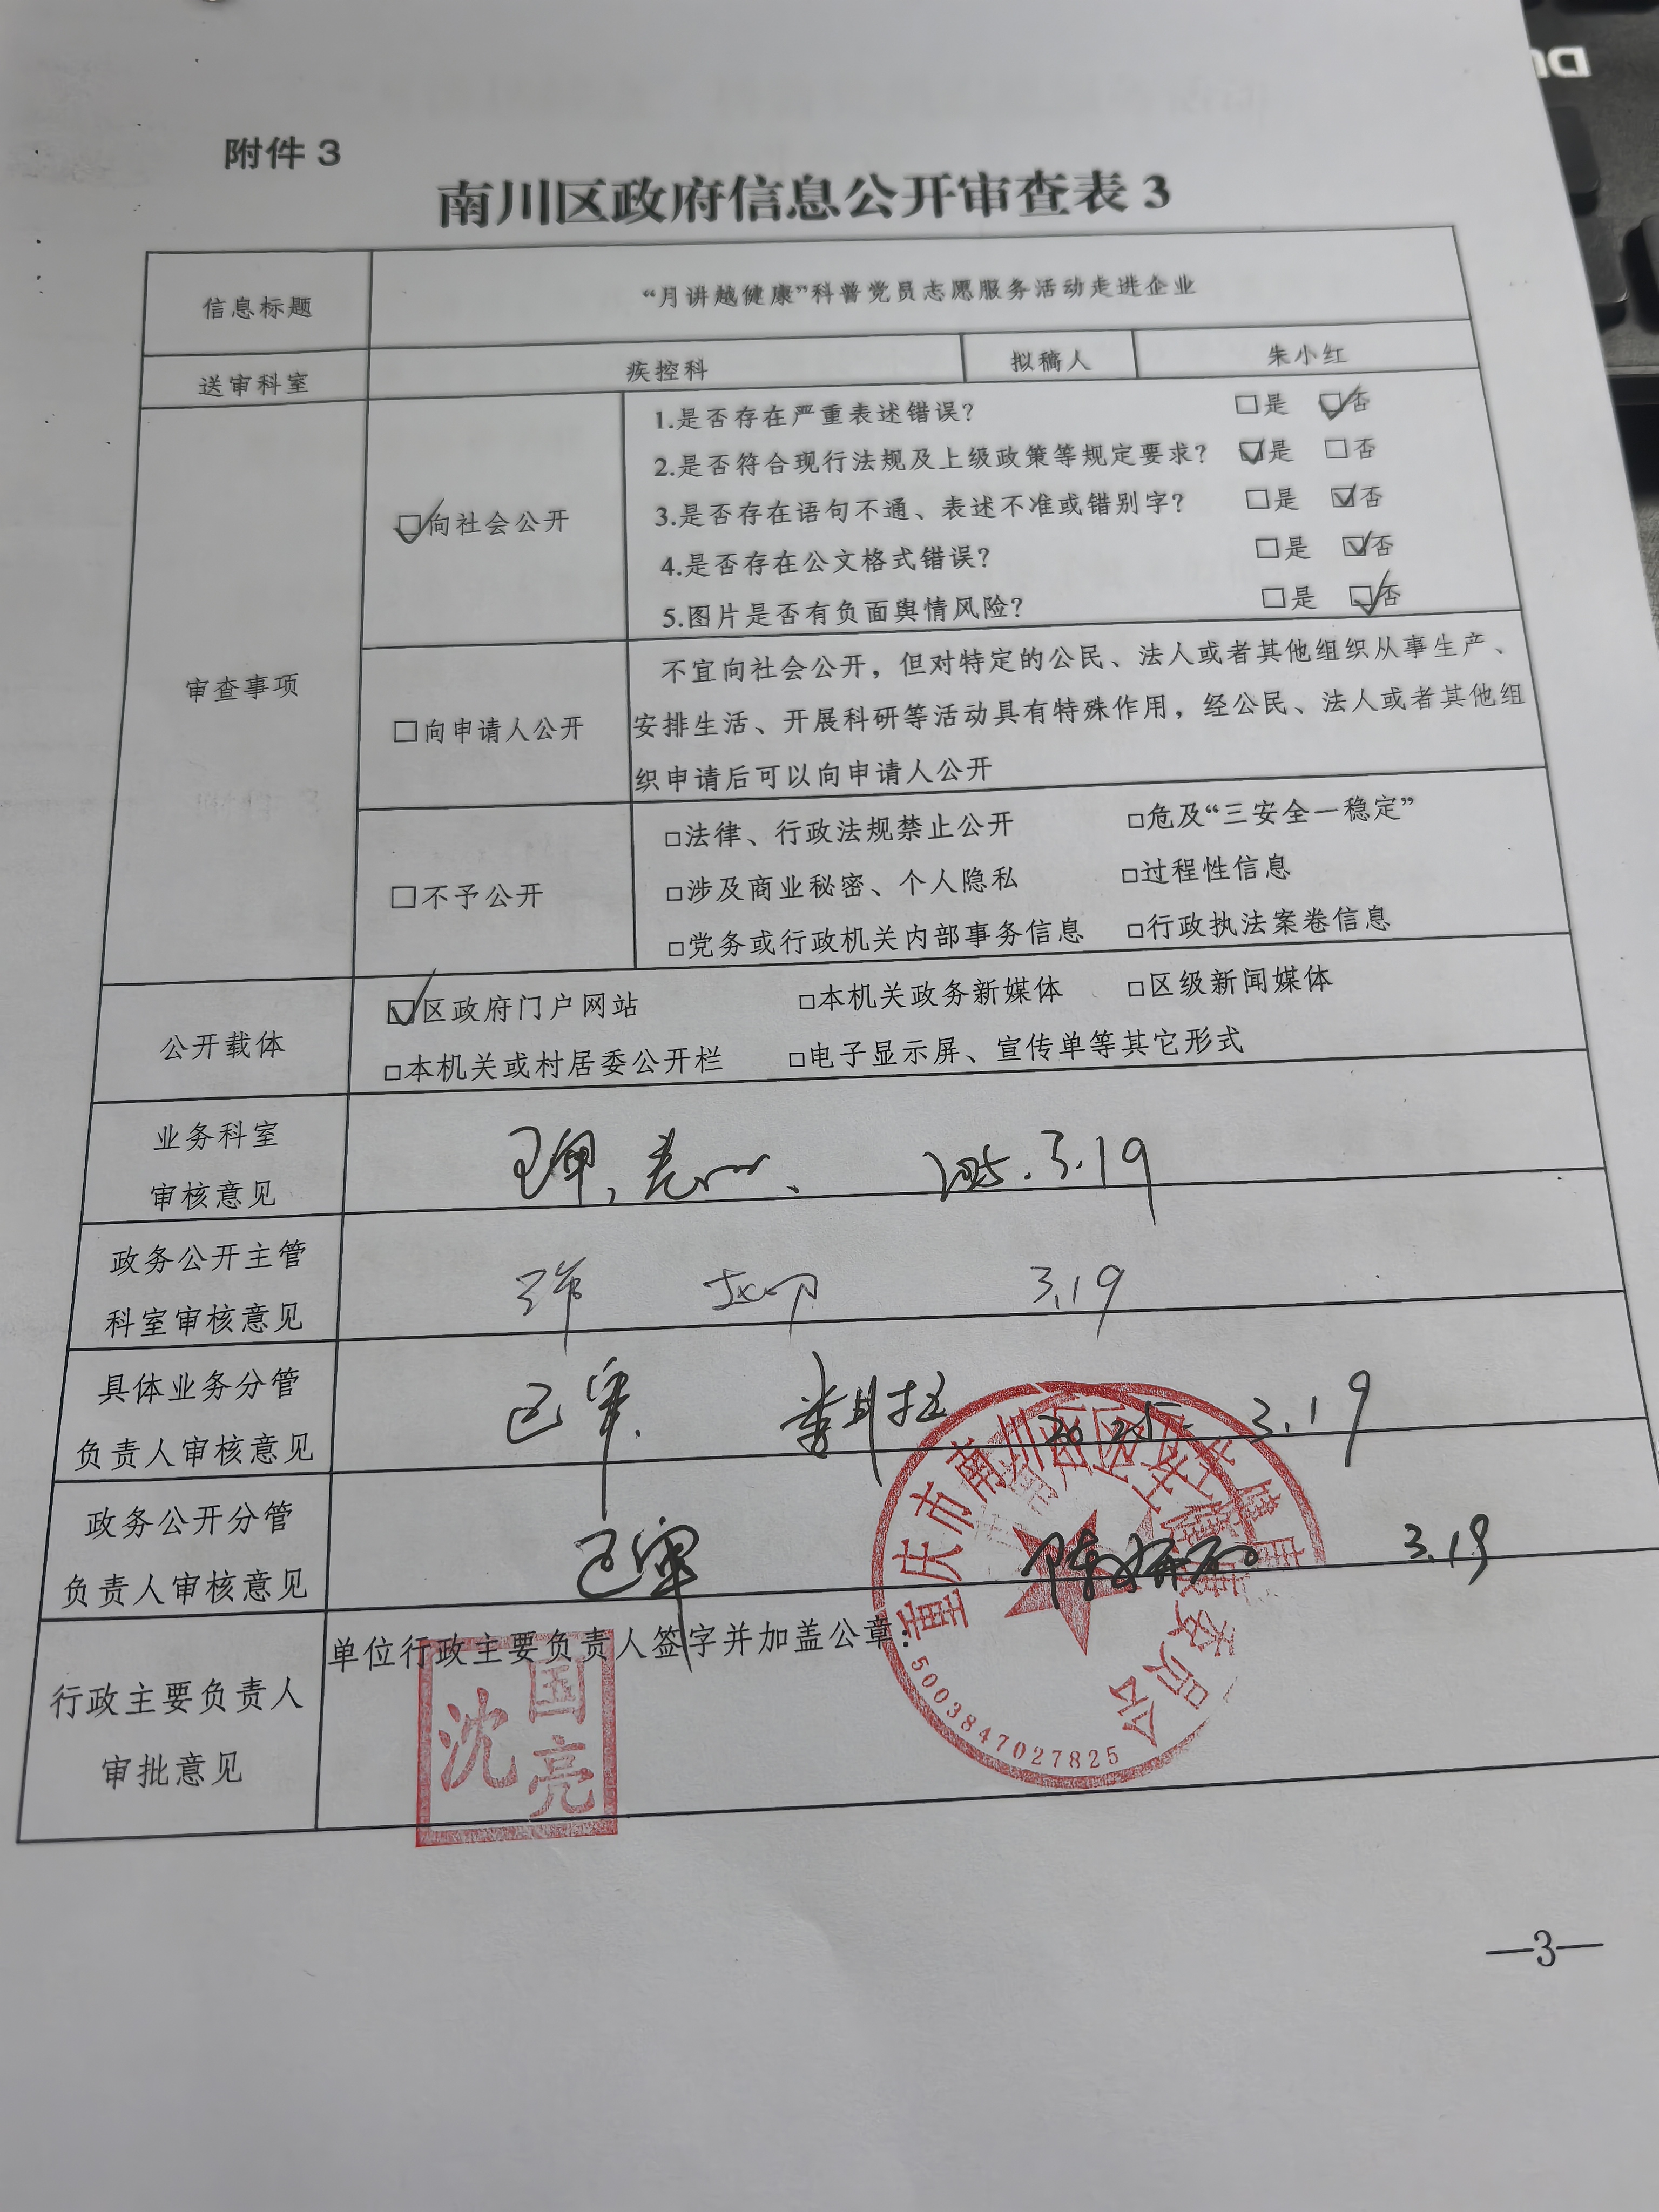 附件 3
南川区政府信息公开审查表 3
信息标题
“月讲越健康”科普党员志愿服务活动走进企业
送审科室
疾控科
拟稿人
朱小红
审查事项
☑向社会公开
1.是否存在严重表述错误? □是 ☑否
2.是否符合现行法规及上级政策等规定要求? ☑是 □否
3.是否存在语句不通、表述不准或错别字? □是 ☑否
4.是否存在公文格式错误? □是 ☑否
5.图片是否有负面舆情风险? □是 ☑否
□向申请人公开
不宜向社会公开，但对特定的公民、法人或者其他组织从事生产、
安排生活、开展科研等活动具有特殊作用，经公民、法人或者其他组
织申请后可以向申请人公开
□不予公开
□法律、行政法规禁止公开 □危及“三安全一稳定”
□涉及商业秘密、个人隐私 □过程性信息
□党务或行政机关内部事务信息 □行政执法案卷信息
公开载体
☑区政府门户网站 □本机关政务新媒体 □区级新闻媒体
□本机关或村居委公开栏 □电子显示屏、宣传单等其它形式
业务科室
审核意见
2025.3.19
政务公开主管
科室审核意见
3.19
具体业务分管
负责人审核意见
已审. 2025. 3.19
政务公开分管
负责人审核意见
已审 3.19
行政主要负责人
审批意见
单位行政主要负责人签字并加盖公章：
沈国亮
重庆市南川区卫生健康委员会
5003847027825
—3—